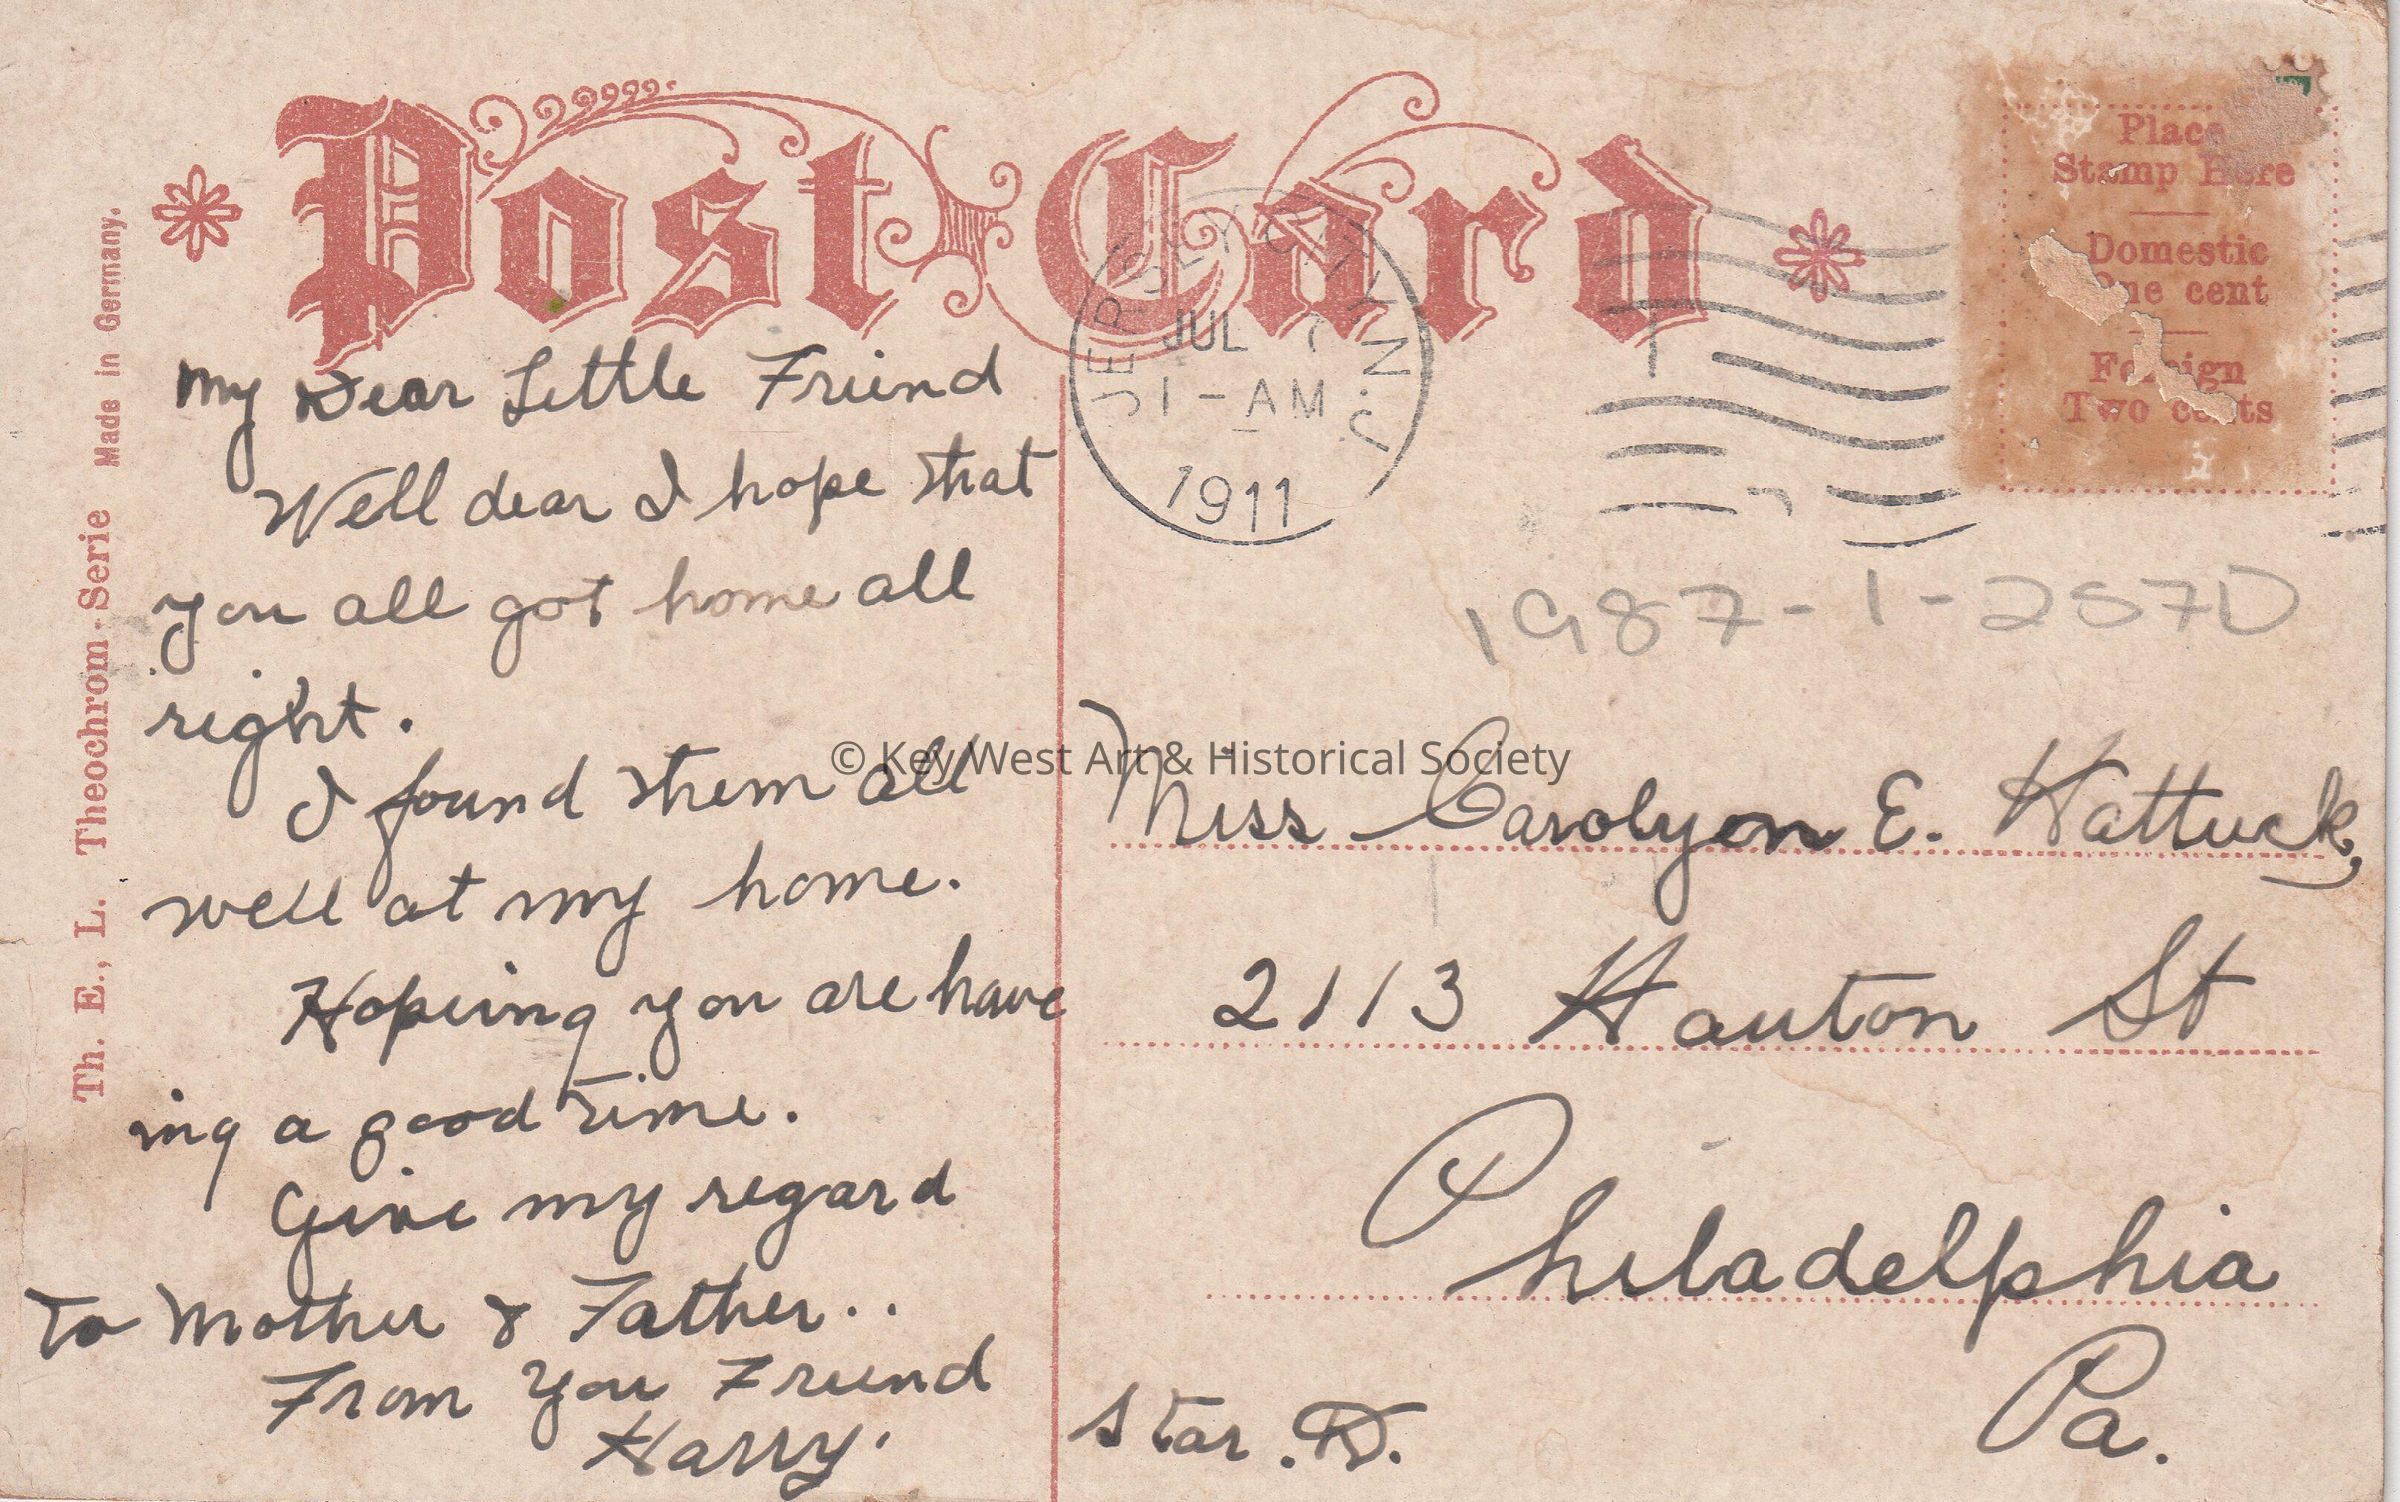 Post Card
Place
Stamp Here
Domestic
One cent
Foreign
Two cents
JERSEY CITY, N.J.
JUL
1-AM
1911
Th. E., L. Theochrom-Serie Made in Germany.
1987-1-257D
My Dear Little Friend
Well dear I hope that
you all got home all
right.
I found them all
well at my home.
Hopeing you are have
ing a good time.
Give my regard
To Mother & Father..
From you Friend
Harry.
Miss Carolyon E. Hattuck,
2113 Hauton St
Philadelphia
Pa.
Star. D.
© Key West Art & Historical Society